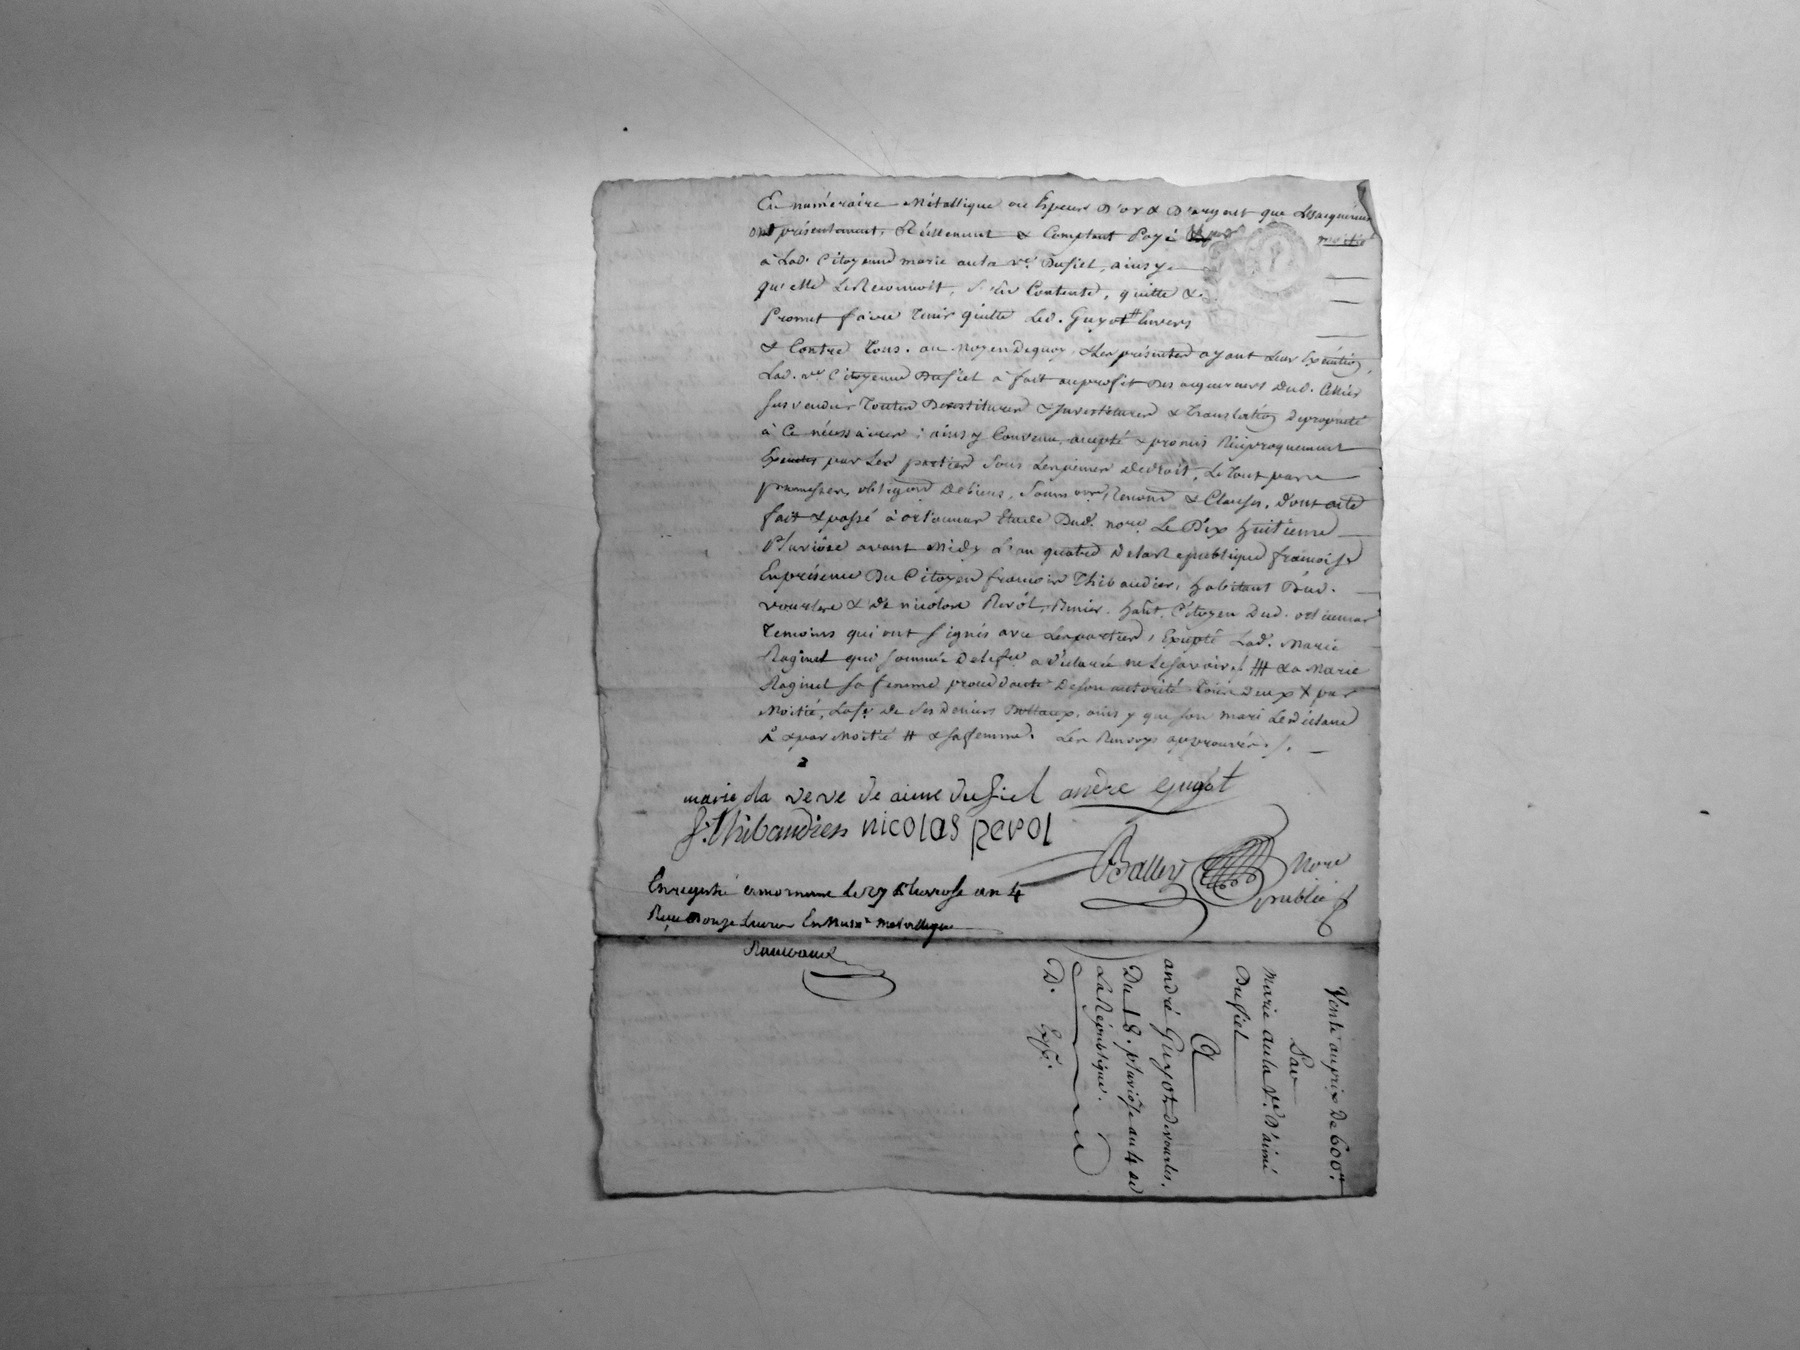 En numéraire Métallique ou Espèces D'or & D'argent que Lesacquéreurs
ont présentement, Réellement & Comptant Payé moitié
à Lad. Citoyenne marie aula ve. Dufiel, ainsy
qu'elle Le Reconnoit, s'en Contente, quitte &
Promet faire Tenir quitte Led. Guyot # Envers
& Contre Tous. au Moyen Dequoy, & Les présentes ayant Leur Exécution,
Lad. ve. Citoyenne Dufiel à fait auprofit Des acquereurs Dud. Cellier
Sus vendu Toutes Devestitures & Investitures & Translation Depropriété
à Ce nécessaires; ainsy Convenu, accepté & promis Réciproquement
par Les parties Sous Lespeines Dedroit, Le Tout par
promesses, obligaon Debiens, Soumons, Renons & Clauses, Dont acte
fait & passé à orliennas Etude Dud. nore. Le Dix huitieme
Pluviôse avant Midy L'an quatre De la République françoise
Enprésence Du Citoyen françois Thibaudier, habitant Dud.
vourles & De nicolas Revol, habt. Citoyen Dud. orliennas
Temoins qui ont signés avec Lesparties, Exepté Lad. Marie
Raginel qui sommée Delefre a déclaré ne Lesavoir. # & a Marie
Raginel sa femme procedante Deson autorité Tous Deux X par
Moitié, Lafe. De ses Deniers Dottaux, ainsy que son mari Ledéclare
& par Moitié # & sa femme. Les Renvoys approuvés.
marie ola veve de aime dufiel andré guyot
f. Thibaudier nicolas revol
Balley Nore
public
Enregistré a mornan le 27 Pluviose an 4
Reçu Douze Livres En Num.e metallique
Vente auprix De 600#.
Par
Marie aula ve. D'aimé
Dufiel
A
andré Guyot devourles.
Du 18. pluviôse an 4 de
La République.
D. Exp.